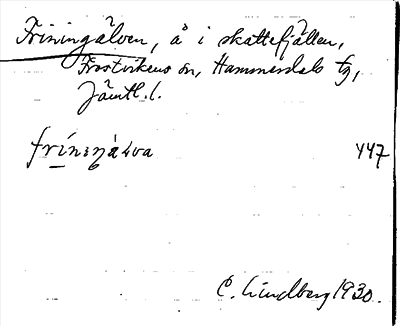 Friningälven, å i skattefjällen,
Frostvikens sn, Hammerdals tg,
Jämtl. l.
447
C. Lindberg 1930.